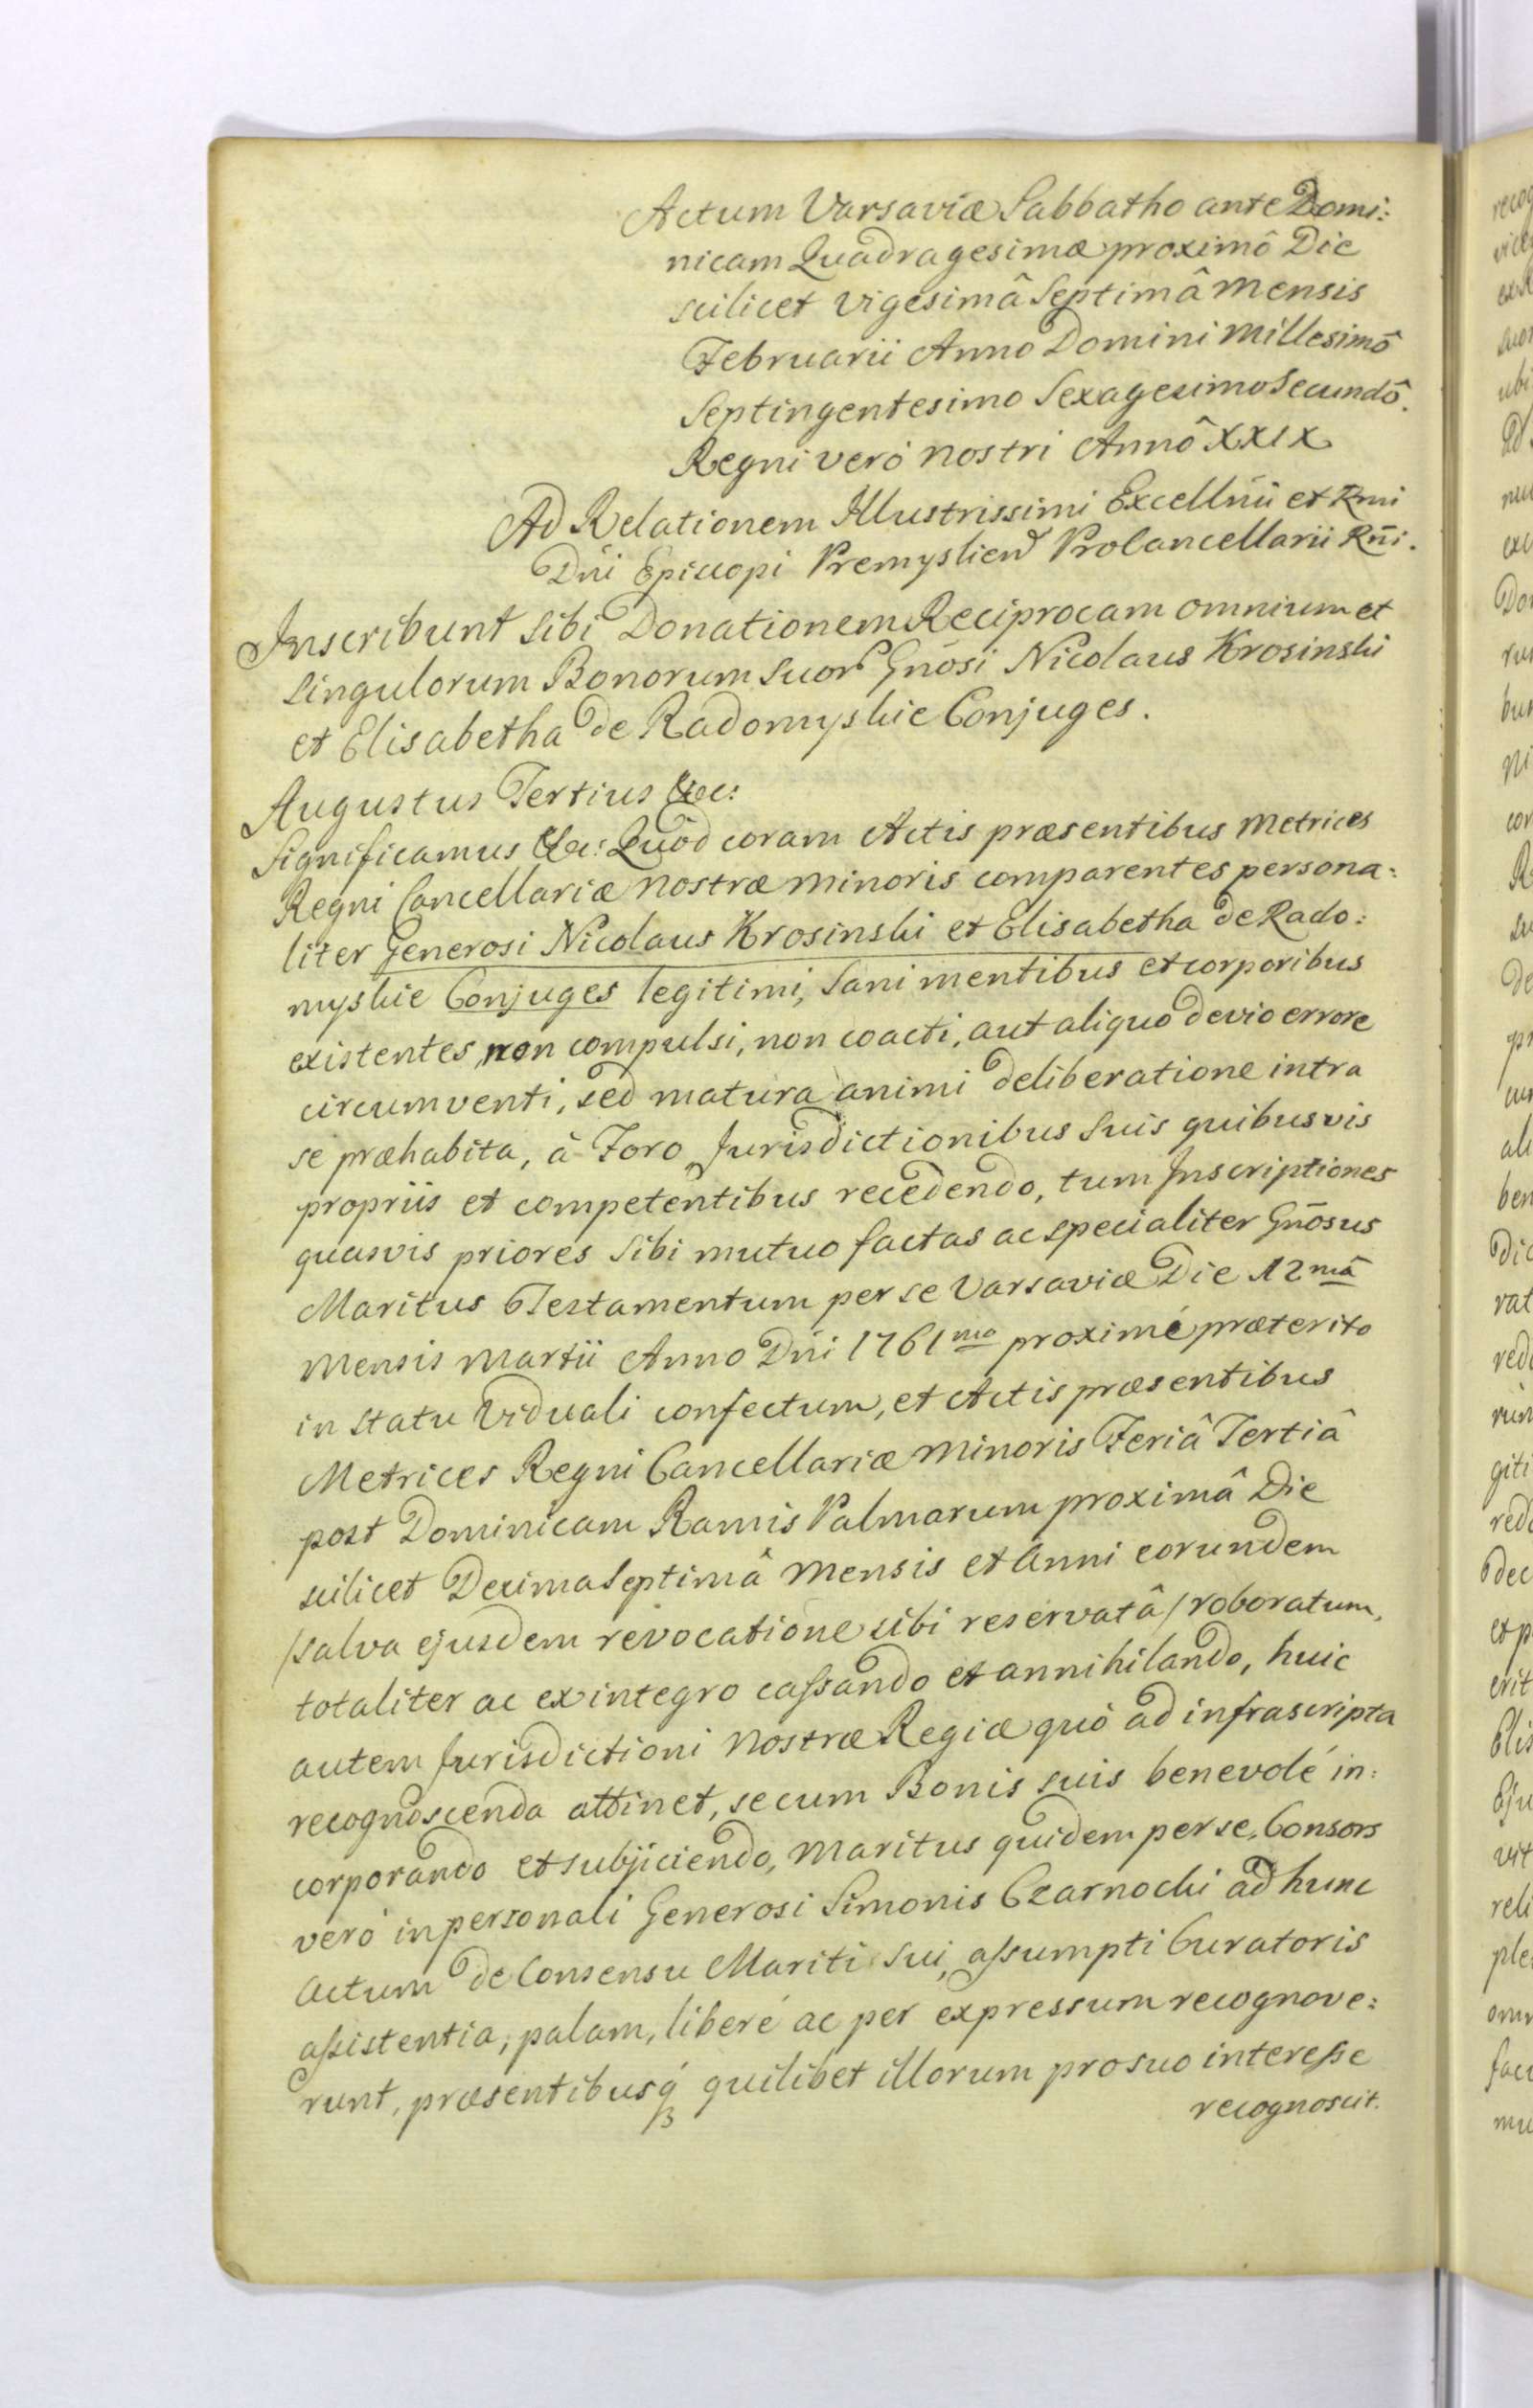 Actum Varsaviæ Sabbatho ante Domi:
nicam Quadragesimæ proximô Die
scilicet vigesimâ Septimâ Mensis
Februarii Anno Domini Millesimô
Septingentesimo Sexagesimo Secundô.
Regni veró nostri Annô XXIX
Ad Relationem Illustrissimi Excellm̃i et Rmi
Dñi Episcopi Premyslien̄ Procancellarii Rñi.
Inscribunt sibi Donationem Reciprocam omnium et
Singulorum Bonorum Suor̃ Gñosi Nicolaus Krosinski
et Elisabetha de Radomyskie Conjuges.
Augustus Tertius &c:
Significamus &c: Quòd coram Actis præsentibus Metrices
Regni Cancellariæ Nostræ Minoris comparentes persona:
liter Generosi Nicolaus Krosinski et Elisabetha de Rado:
myskie Conjuges legitimi, Sani mentibus et corporibus
existentes, non compulsi, non coacti, aut aliquo devio errore
circumventi, sed matura animi deliberatione intra
se præhabita, à Foro Jurisdictionibus Suis quibusvis
propriis et competentibus recedendo, tum Inscriptiones
quasvis priores Sibi mutuo factas ac specialiter Gñosus
Maritus Testamentum per se Varsaviæ Die 12mâ
Mensis Martii Anno Dñi 1761mo proximé præterito
in statu Viduali confectum, et Actis præsentibus
Metrices Regni Cancellariæ Minoris Feriâ Tertiâ
post Dominicam Ramis Palmarum proximâ Die
scilicet Decima Septimâ Mensis et Anni eorundem
/salva ejusdem revocatione sibi reservatâ/ roboratum,
totaliter ac ex integro cassando et annihilando, huic
autem Jurisdictioni Nostræ Regiæ quò ad infrascripta
recognoscenda attinet, se cum Bonis suis benevolé in:
corporando et subjiciendo, Maritus quidem per se, Consors
veró in personali Generosi Simonis Czarnocki ad hunc
Actum de Consensu Mariti Sui, assumpti Curatoris
assistentia, palam, liberé ac per expressum recognove:
runt, præsentibusq́ quilibet illorum pro suo interesse
recognoscit.